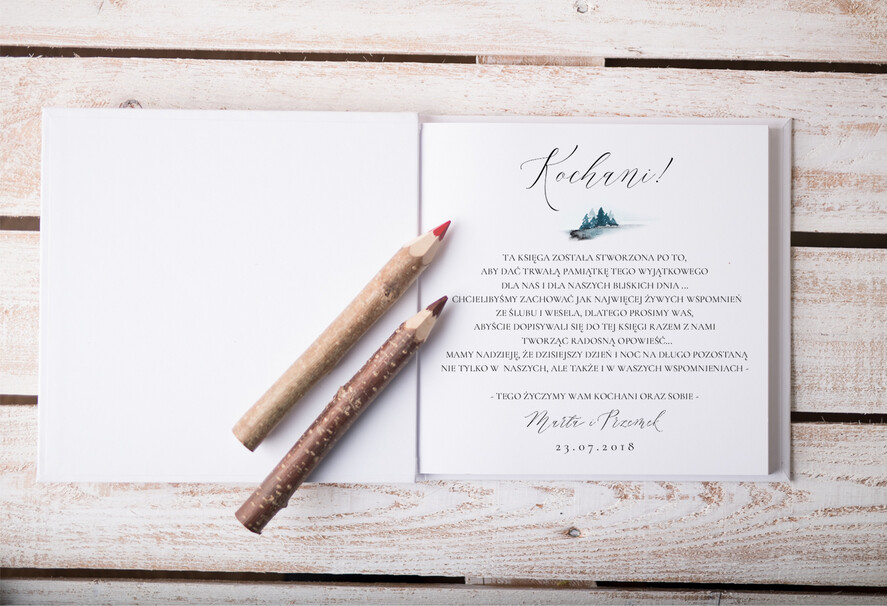 Kochani!
TA KSIĘGA ZOSTAŁA STWORZONA PO TO,
ABY DAĆ TRWAŁĄ PAMIĄTKĘ TEGO WYJĄTKOWEGO
DLA NAS I DLA NASZYCH BLISKICH DNIA ...
CHCIELIBYŚMY ZACHOWAĆ JAK NAJWIĘCEJ ŻYWYCH WSPOMNIEŃ
ZE ŚLUBU I WESELA, DLATEGO PROSIMY WAS,
ABYŚCIE DOPISYWALI SIĘ DO TEJ KSIĘGI RAZEM Z NAMI
TWORZĄC RADOSNĄ OPOWIEŚĆ...
MAMY NADZIEJĘ, ŻE DZISIEJSZY DZIEŃ I NOC NA DŁUGO POZOSTANĄ
NIE TYLKO W NASZYCH, ALE TAKŻE I W WASZYCH WSPOMNIENIACH -
- TEGO ŻYCZYMY WAM KOCHANI ORAZ SOBIE -
Marta i Przemek
23.07.2018